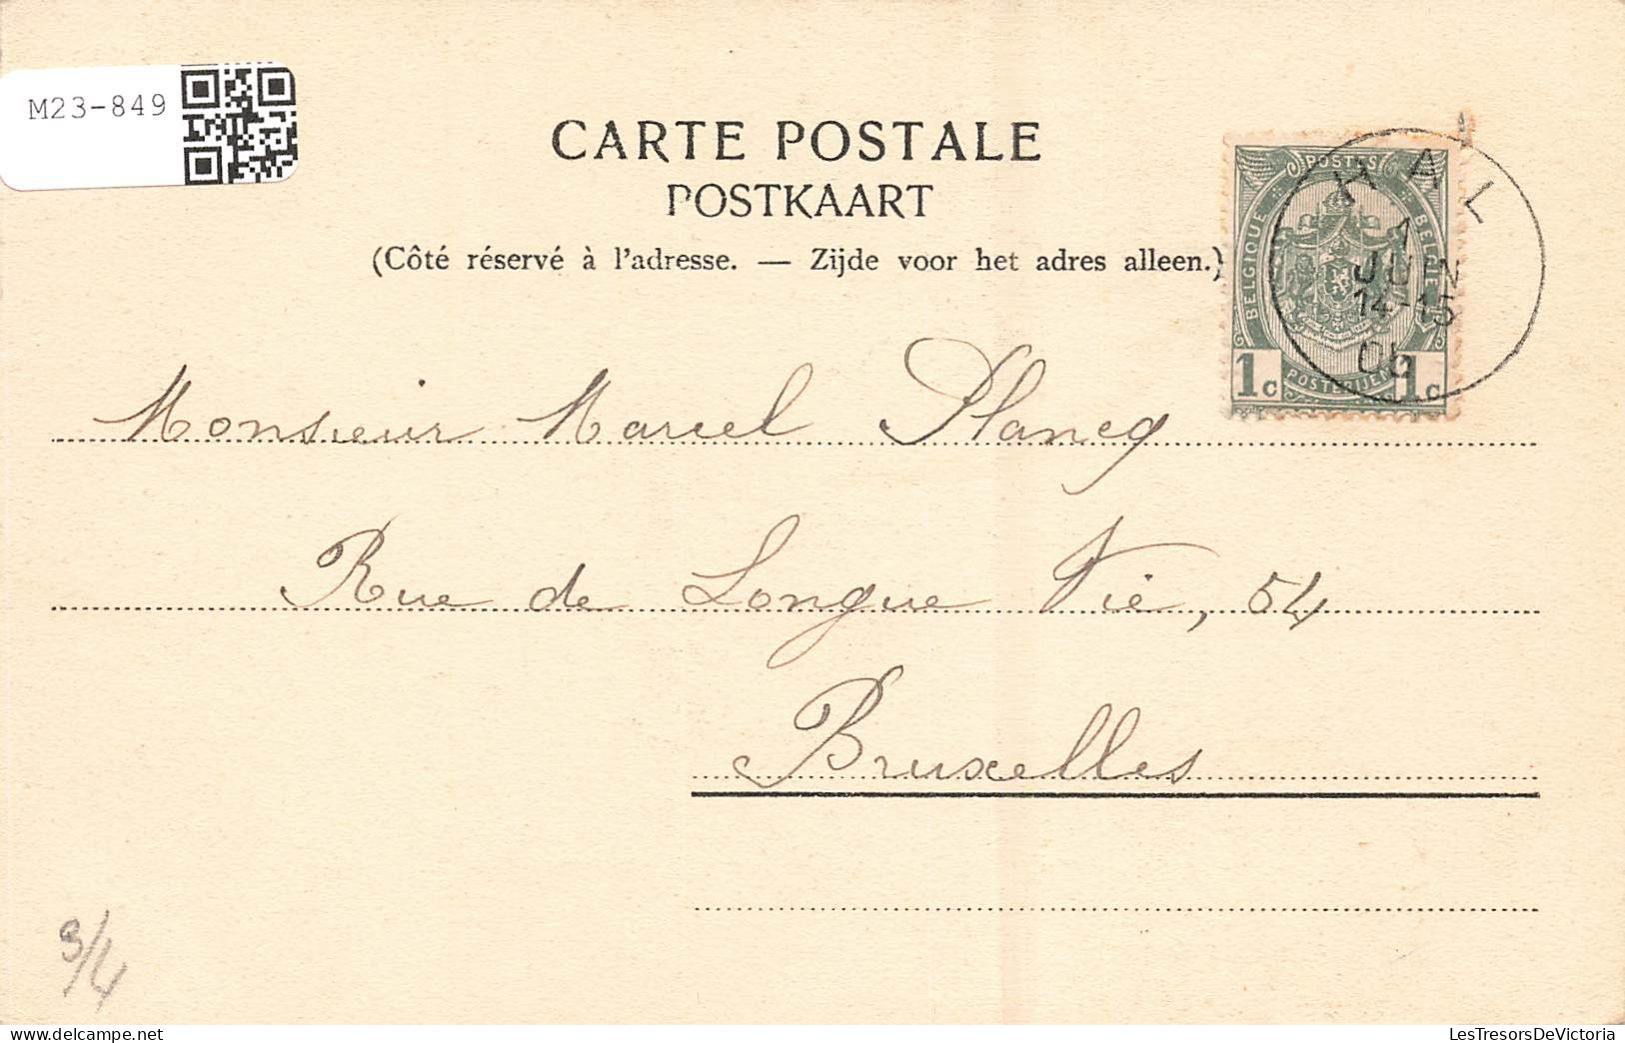 M23-849
CARTE POSTALE
POSTKAART
(Côté réservé à l'adresse. — Zijde voor het adres alleen.)
POSTES
BELGIQUE
BELGIË
1c
POSTERIJEN
1c
HAL
1
JUIN
14-15
Monsieur Marcel Plancq
Rue de Longue Vie, 54
Bruxelles
3/4
LesTresorsDeVictoria